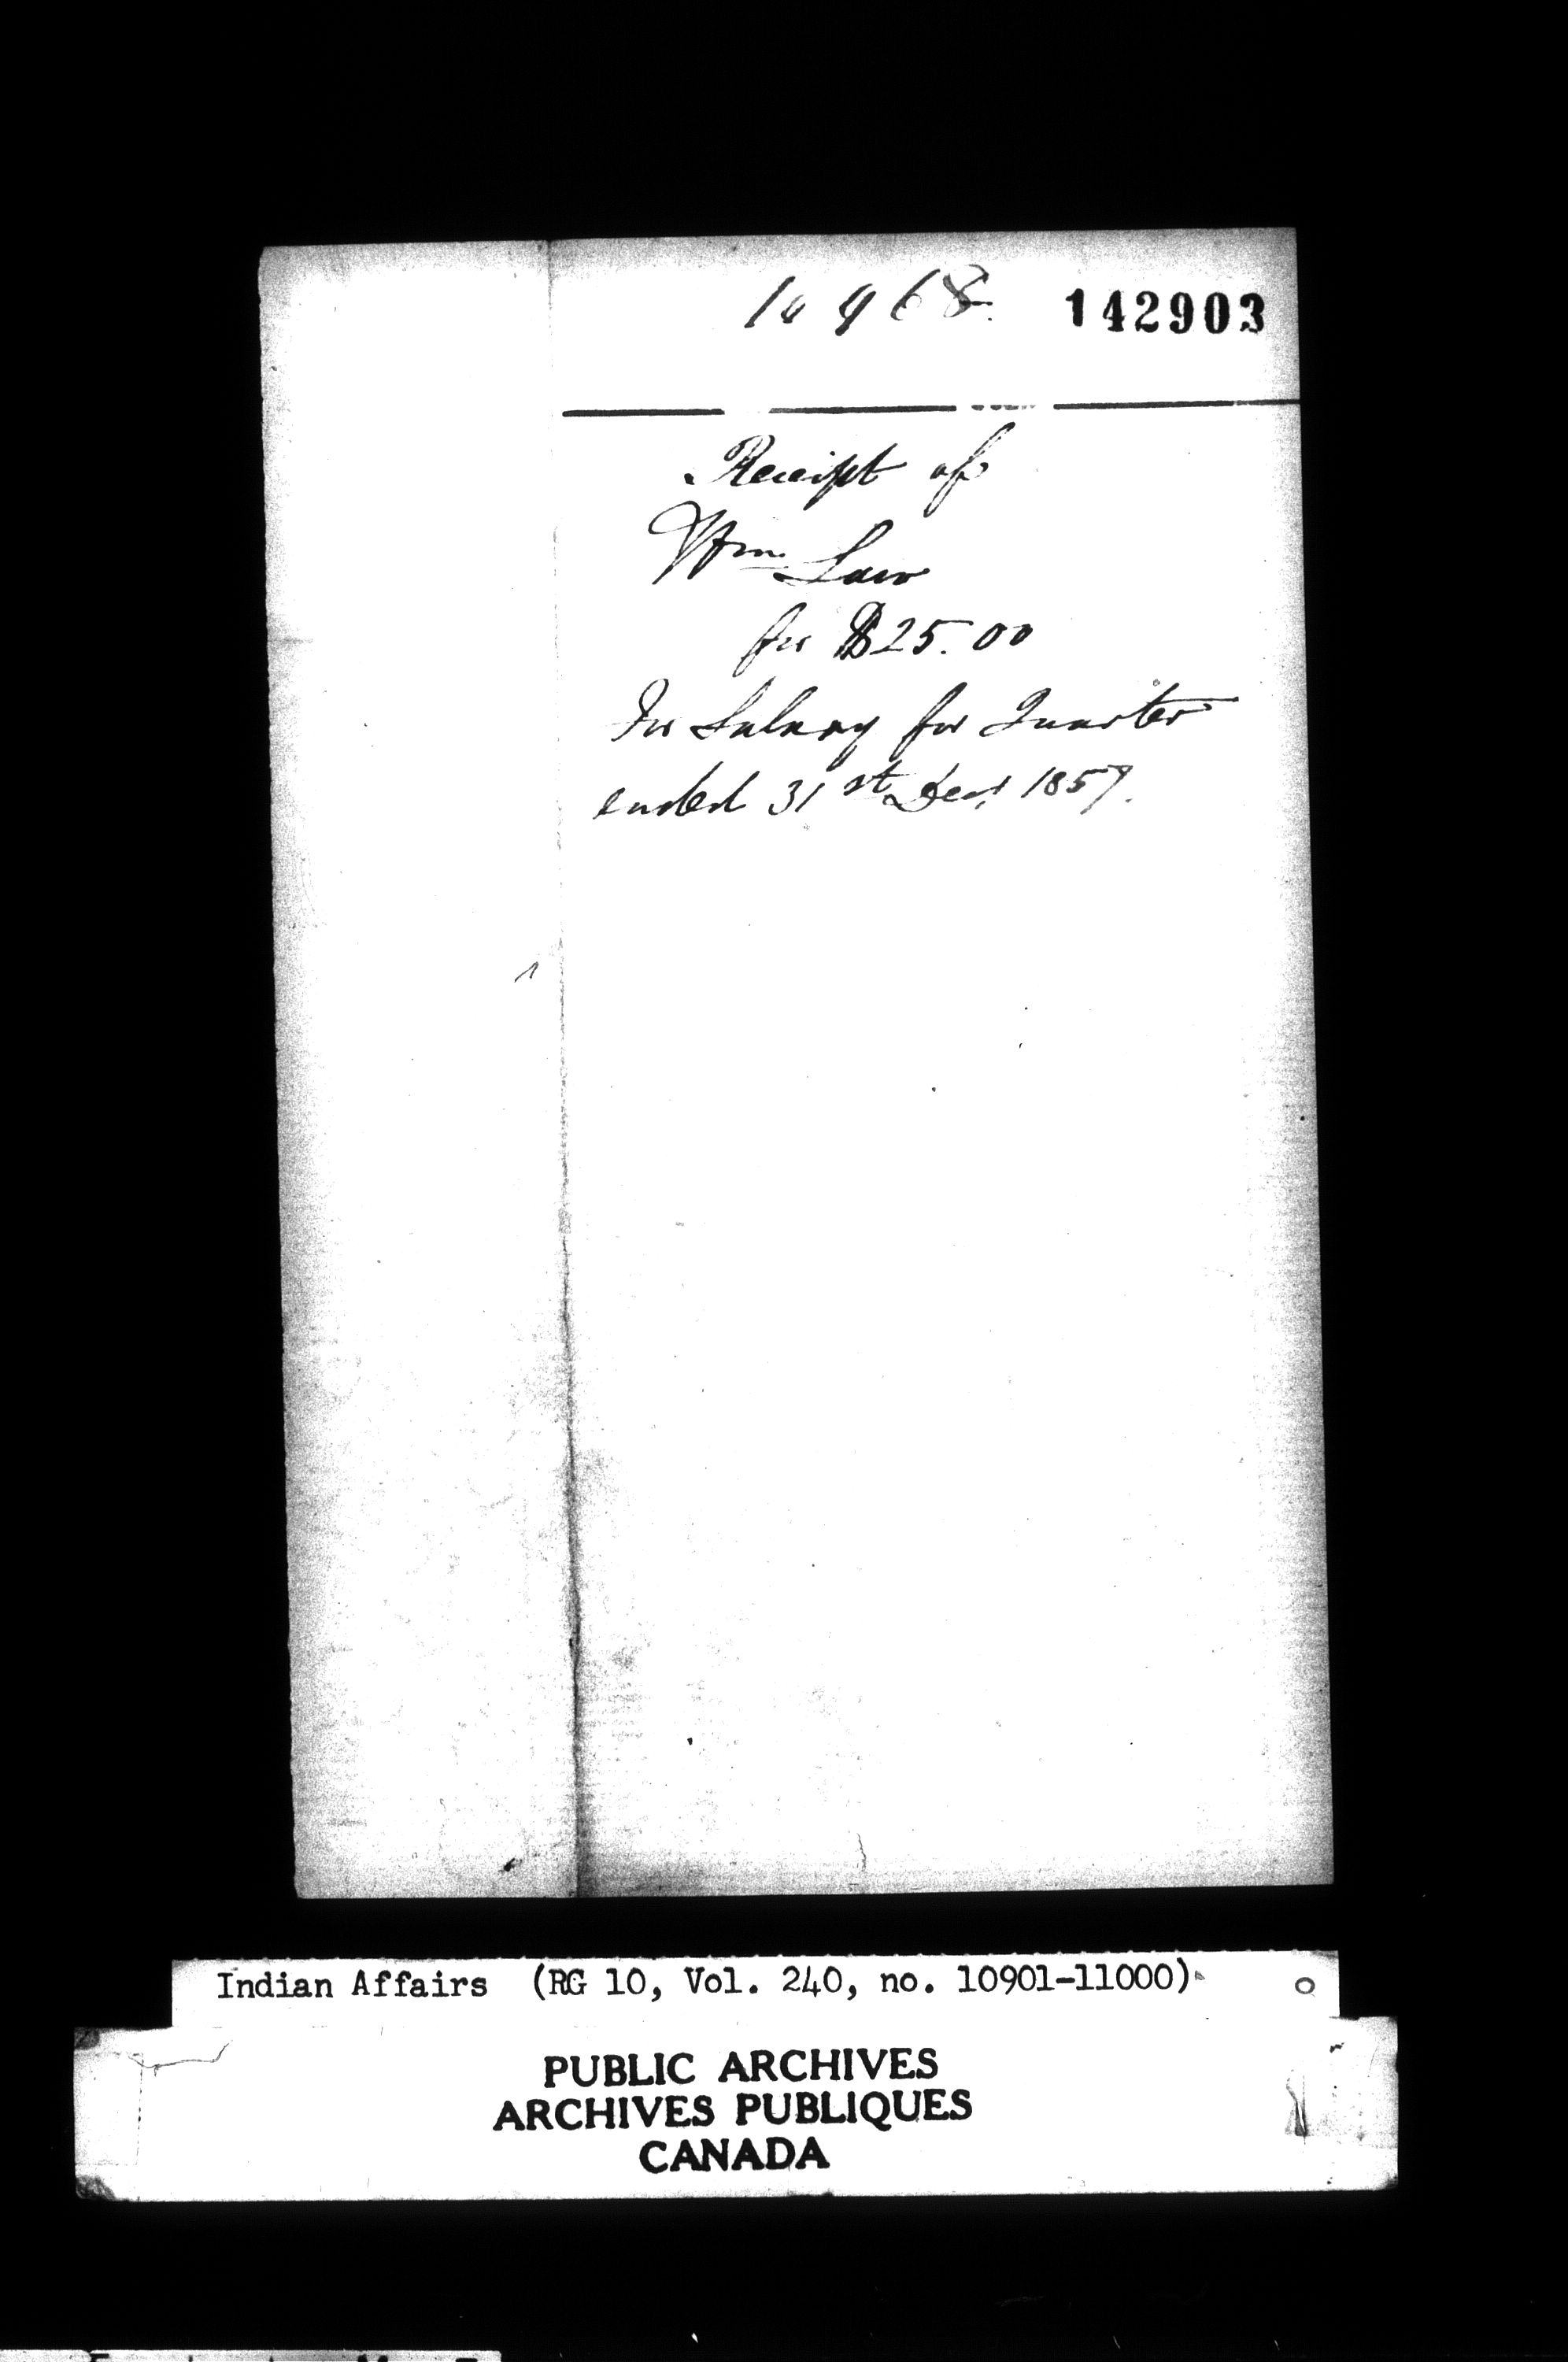 10968. 142903
Receipt of
Wm Law
for $25.00
For Salary for Quarter
ended 31st Decr 1857.
Indian Affairs (RG 10, Vol. 240, no. 10901-11000)
PUBLIC ARCHIVES
ARCHIVES PUBLIQUES
CANADA